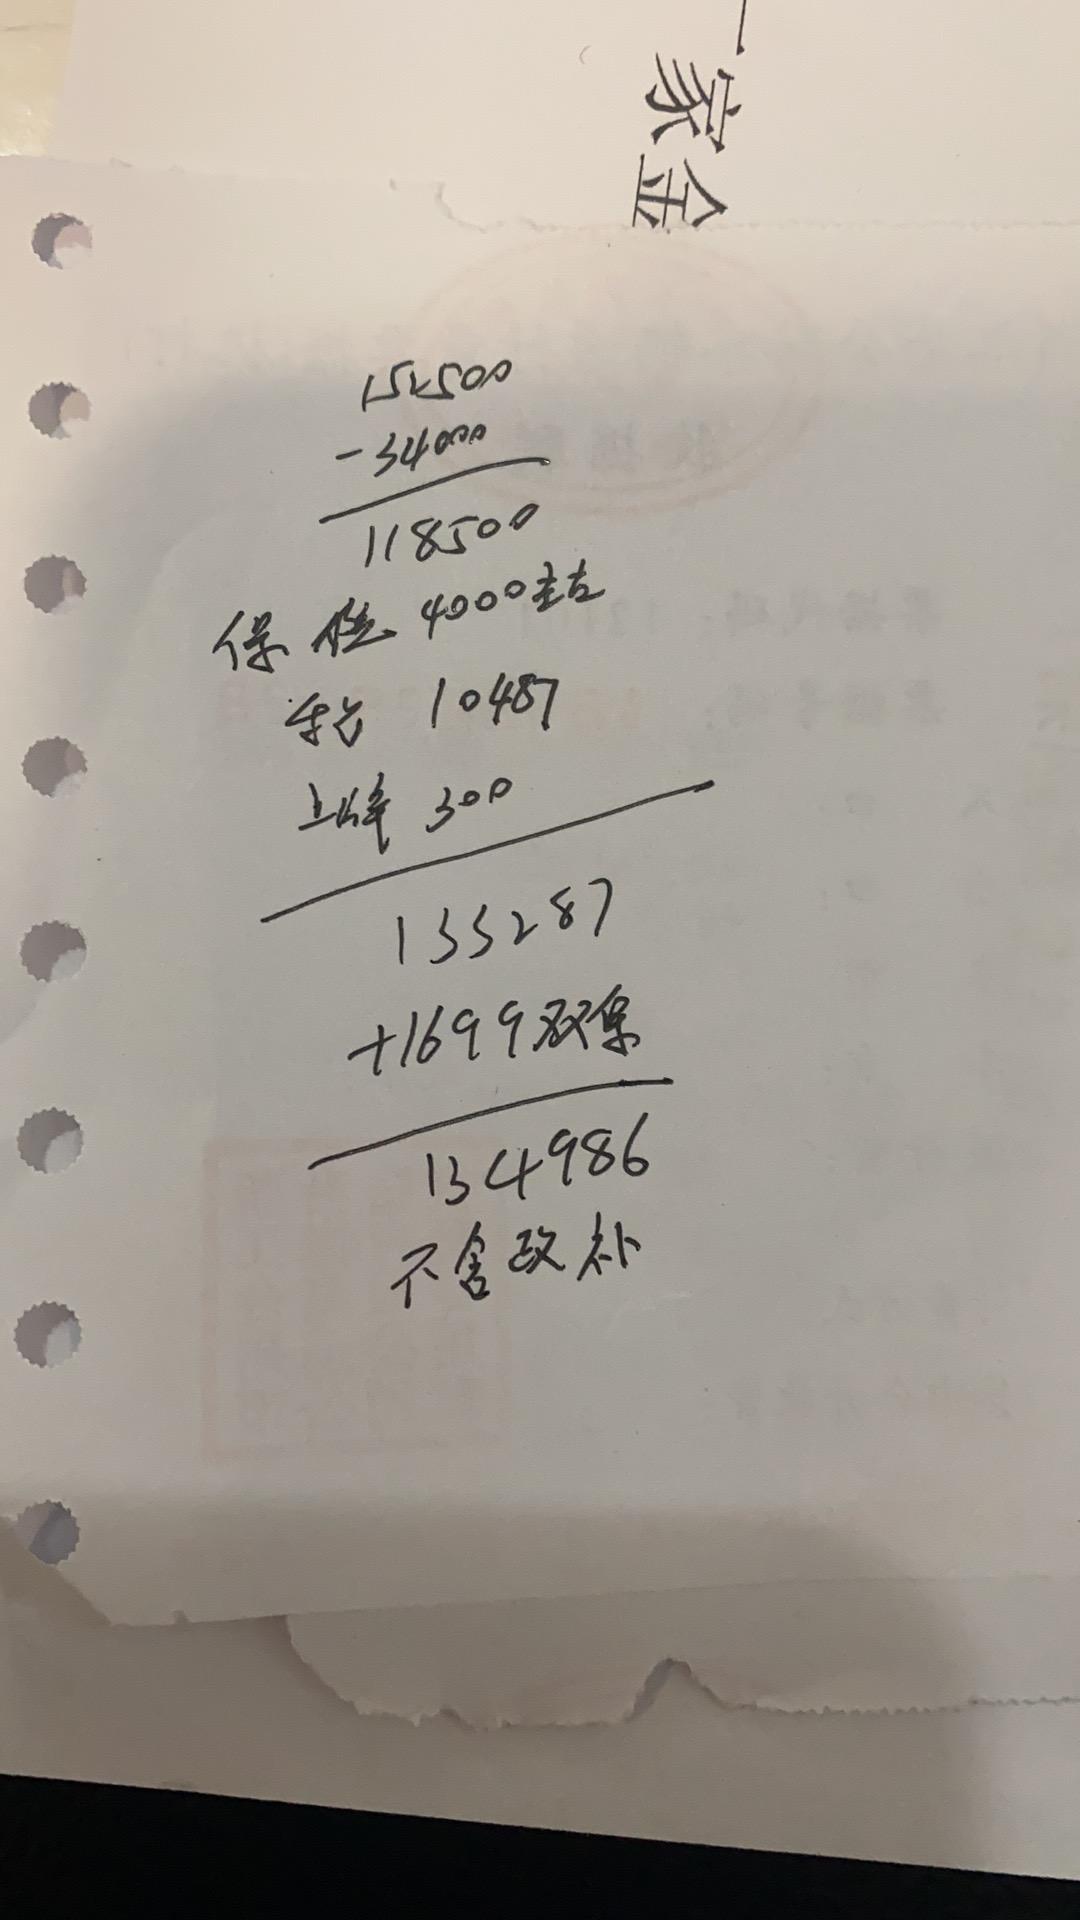 一家金
152500
-34000
118500
保险 4000左右
10487
上牌 300
133287
+1699双保
134986
不含政补